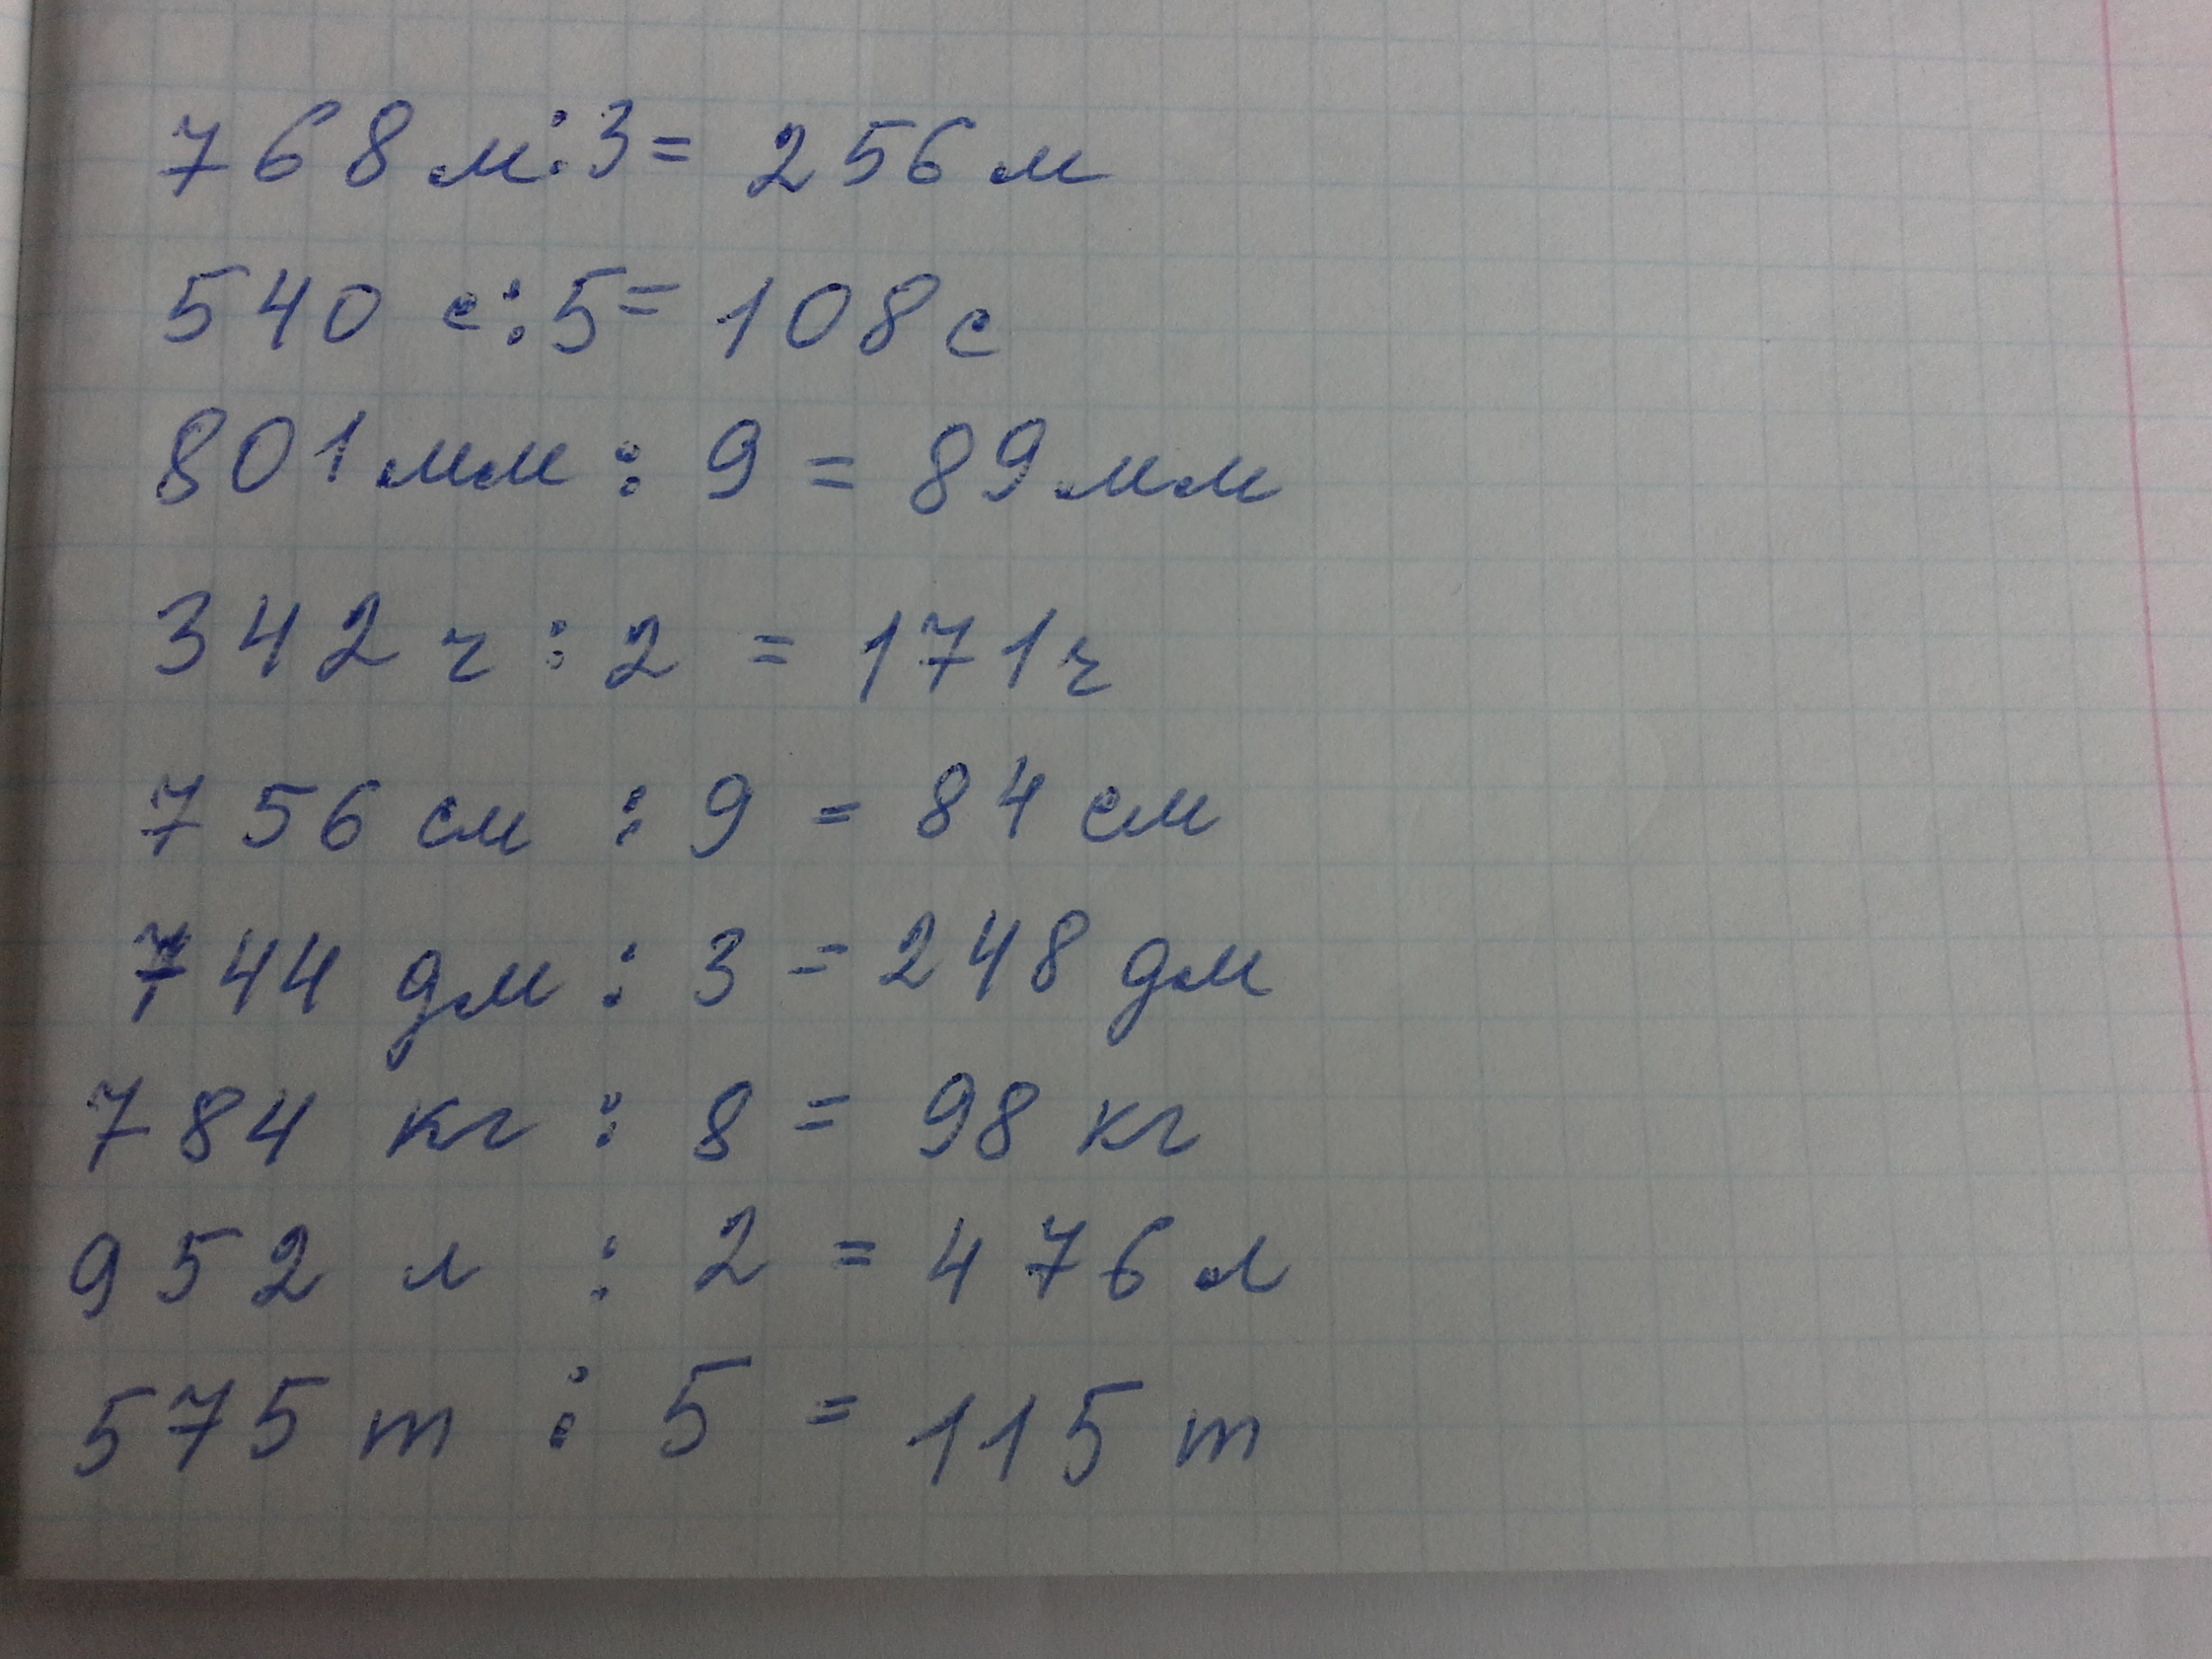 768 м : 3 = 256 м
540 с : 5 = 108 с
801 мм : 9 = 89 мм
342 ч : 2 = 171 ч
756 см : 9 = 84 см
744 дм : 3 = 248 дм
784 кг : 8 = 98 кг
952 л : 2 = 476 л
575 т : 5 = 115 т